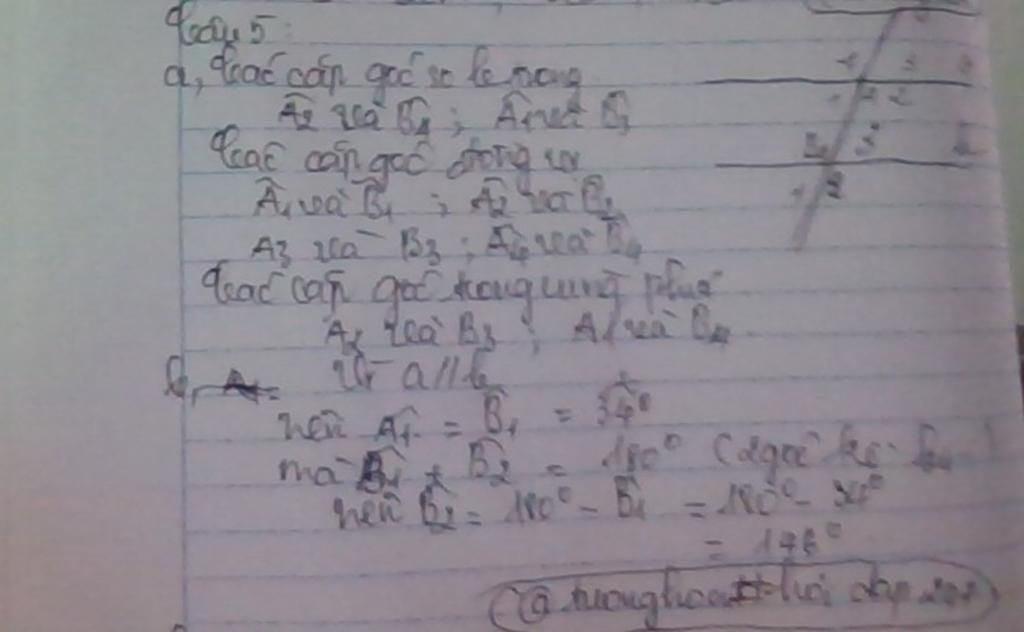 Câu 5:
a, Các cặp góc so le trong
Â2 và B̂4 ; Â1 và B̂3
Các cặp góc đồng vị
Â1 và B̂1 ; Â2 và B̂2
A3 và B3 ; Â4 và B̂4
Các cặp góc trong cùng phía
A2 và B3 ; A1 và B4
b, Vì a // b
nên Â1 = B̂1 = 34°
mà B̂1 + B̂2 = 180° (2 góc kề bù)
nên B̂2 = 180° - B̂1 = 180° - 34°
= 146°